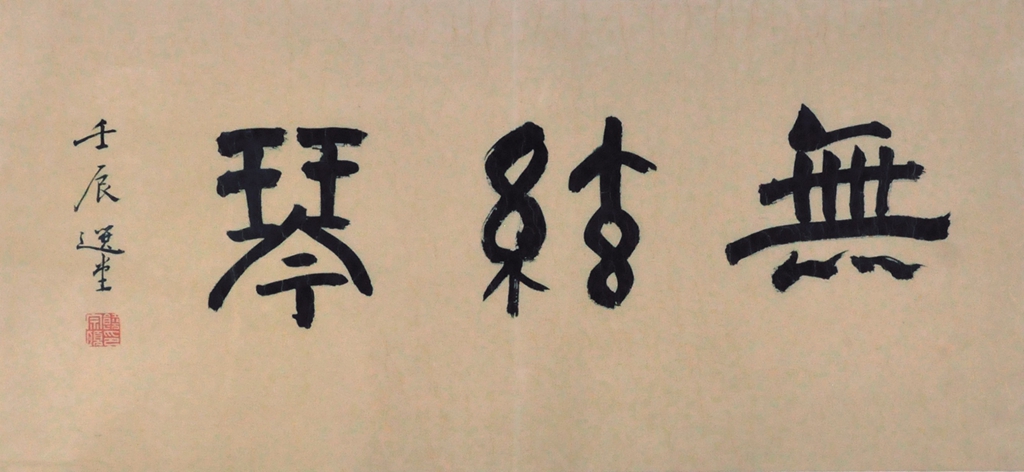 無絃琴
壬辰選堂